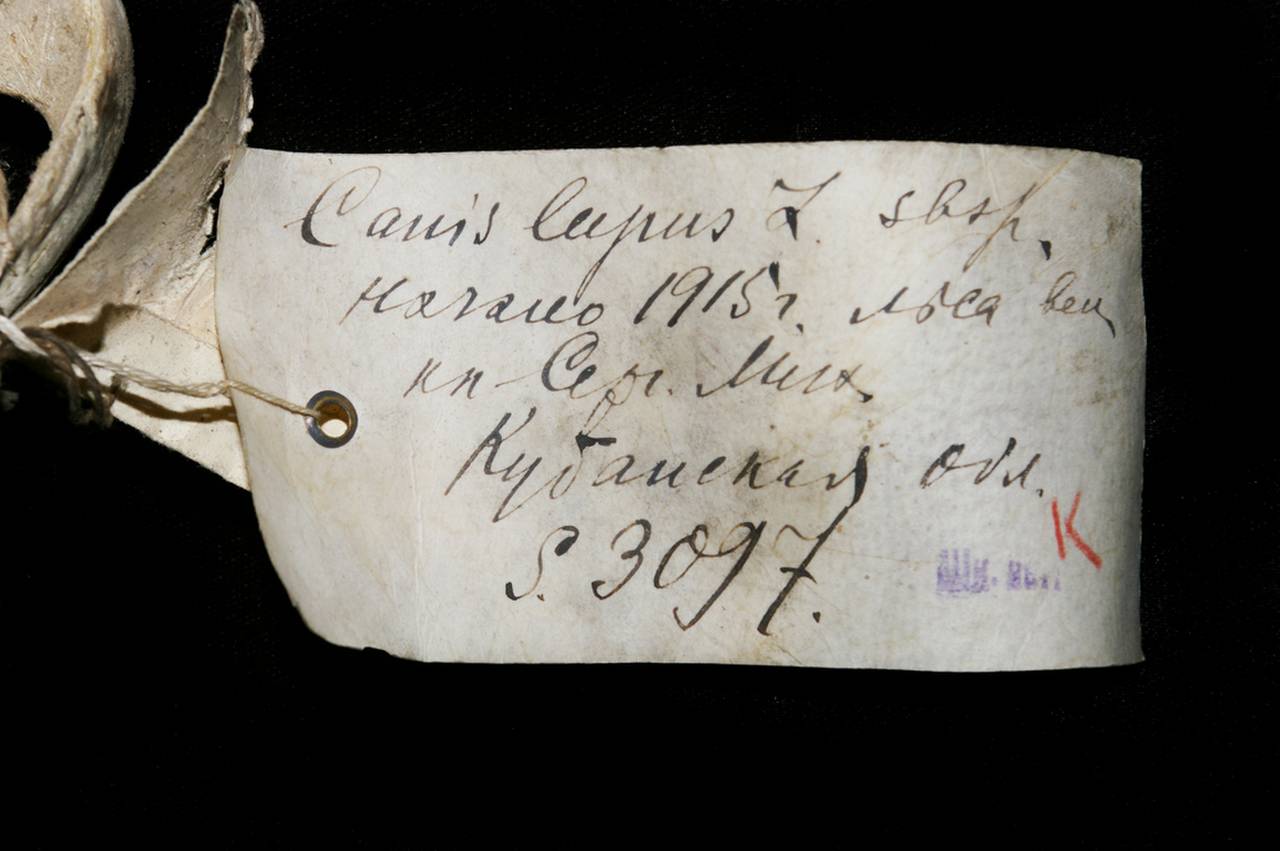 Canis lupus L. sbsp.
начало 1915 г. лѣса вел.
кн. Серг. Мих.
Кубанская обл.
S. 3097.
К